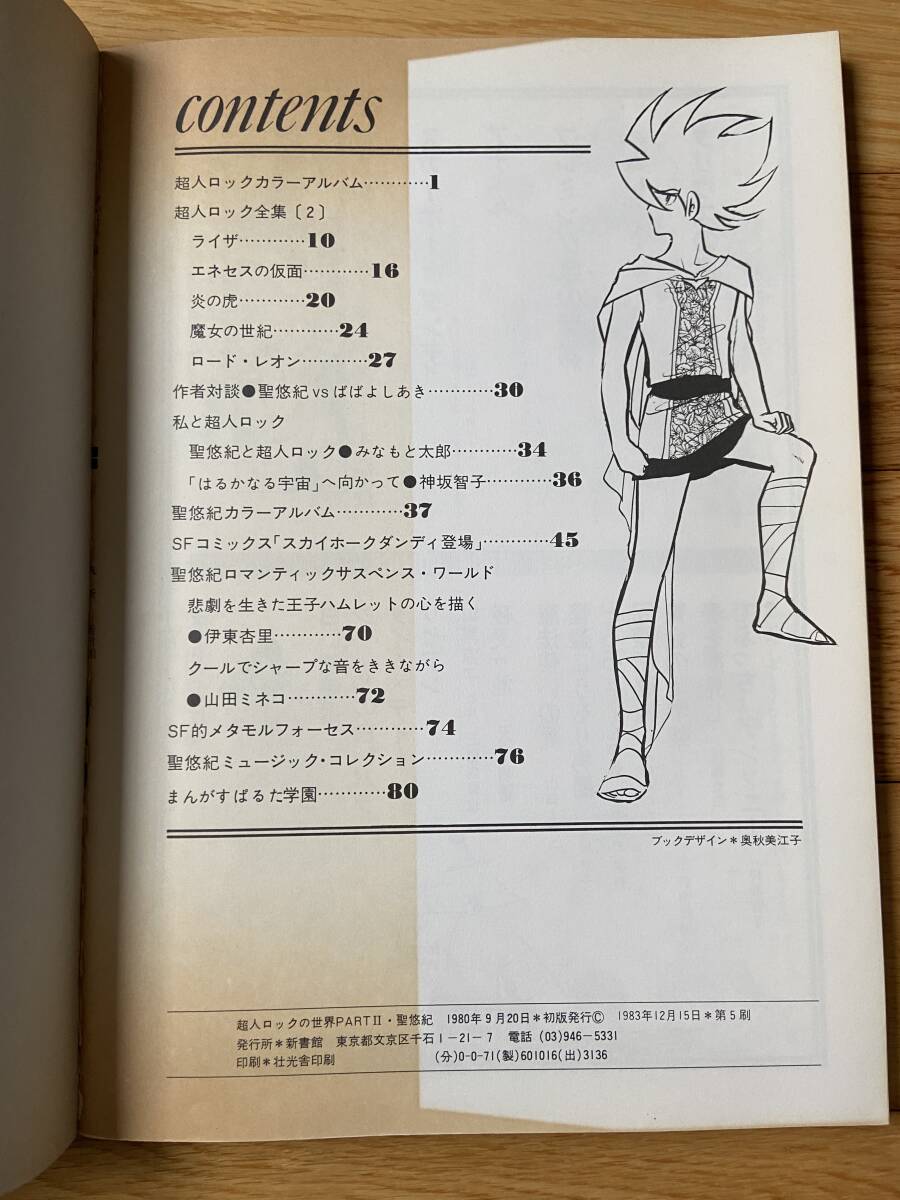 contents
超人ロックカラーアルバム…………1
超人ロック全集〔2〕
ライザ…………10
エネセスの仮面…………16
炎の虎…………20
魔女の世紀…………24
ロード・レオン…………27
作者対談●聖悠紀vsばばよしあき…………30
私と超人ロック
聖悠紀と超人ロック●みなもと太郎…………34
「はるかなる宇宙」へ向かって●神坂智子…………36
聖悠紀カラーアルバム…………37
SFコミックス「スカイホークダンディ登場」…………45
聖悠紀ロマンティックサスペンス・ワールド
悲劇を生きた王子ハムレットの心を描く
●伊東杏里…………70
クールでシャープな音をききながら
●山田ミネコ…………72
SF的メタモルフォーセス…………74
聖悠紀ミュージック・コレクション…………76
まんがすぱるた学園…………80
ブックデザイン＊奥秋美江子
超人ロックの世界PARTⅡ・聖悠紀 1980年9月20日＊初版発行Ⓒ 1983年12月15日＊第5刷
発行所＊新書館 東京都文京区千石1-21-7 電話(03)946-5331
印刷＊壮光舎印刷 (分)0-0-71(製)601016(出)3136